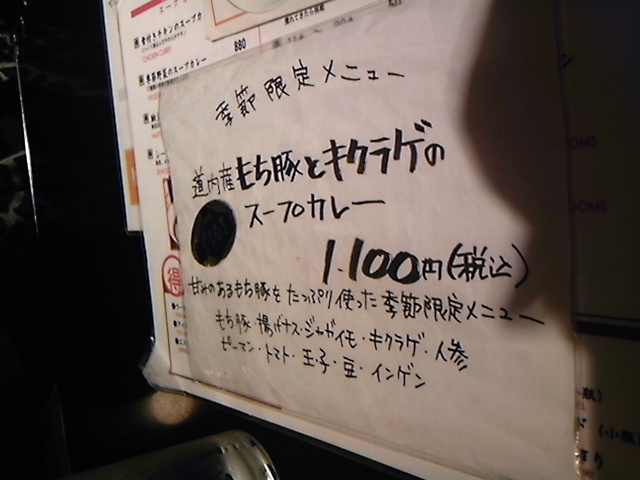 骨付きチキンのスープカ
季節野菜のスープカレー
880
季節限定メニュー
道内産もち豚とキクラゲの
スープカレー
1.100円(税込)
甘みのあるもち豚をたっぷり使った季節限定メニュー
もち豚・揚げナス・ジャガイモ・キクラゲ・人参
ピーマン・トマト・玉子・豆・インゲン
得